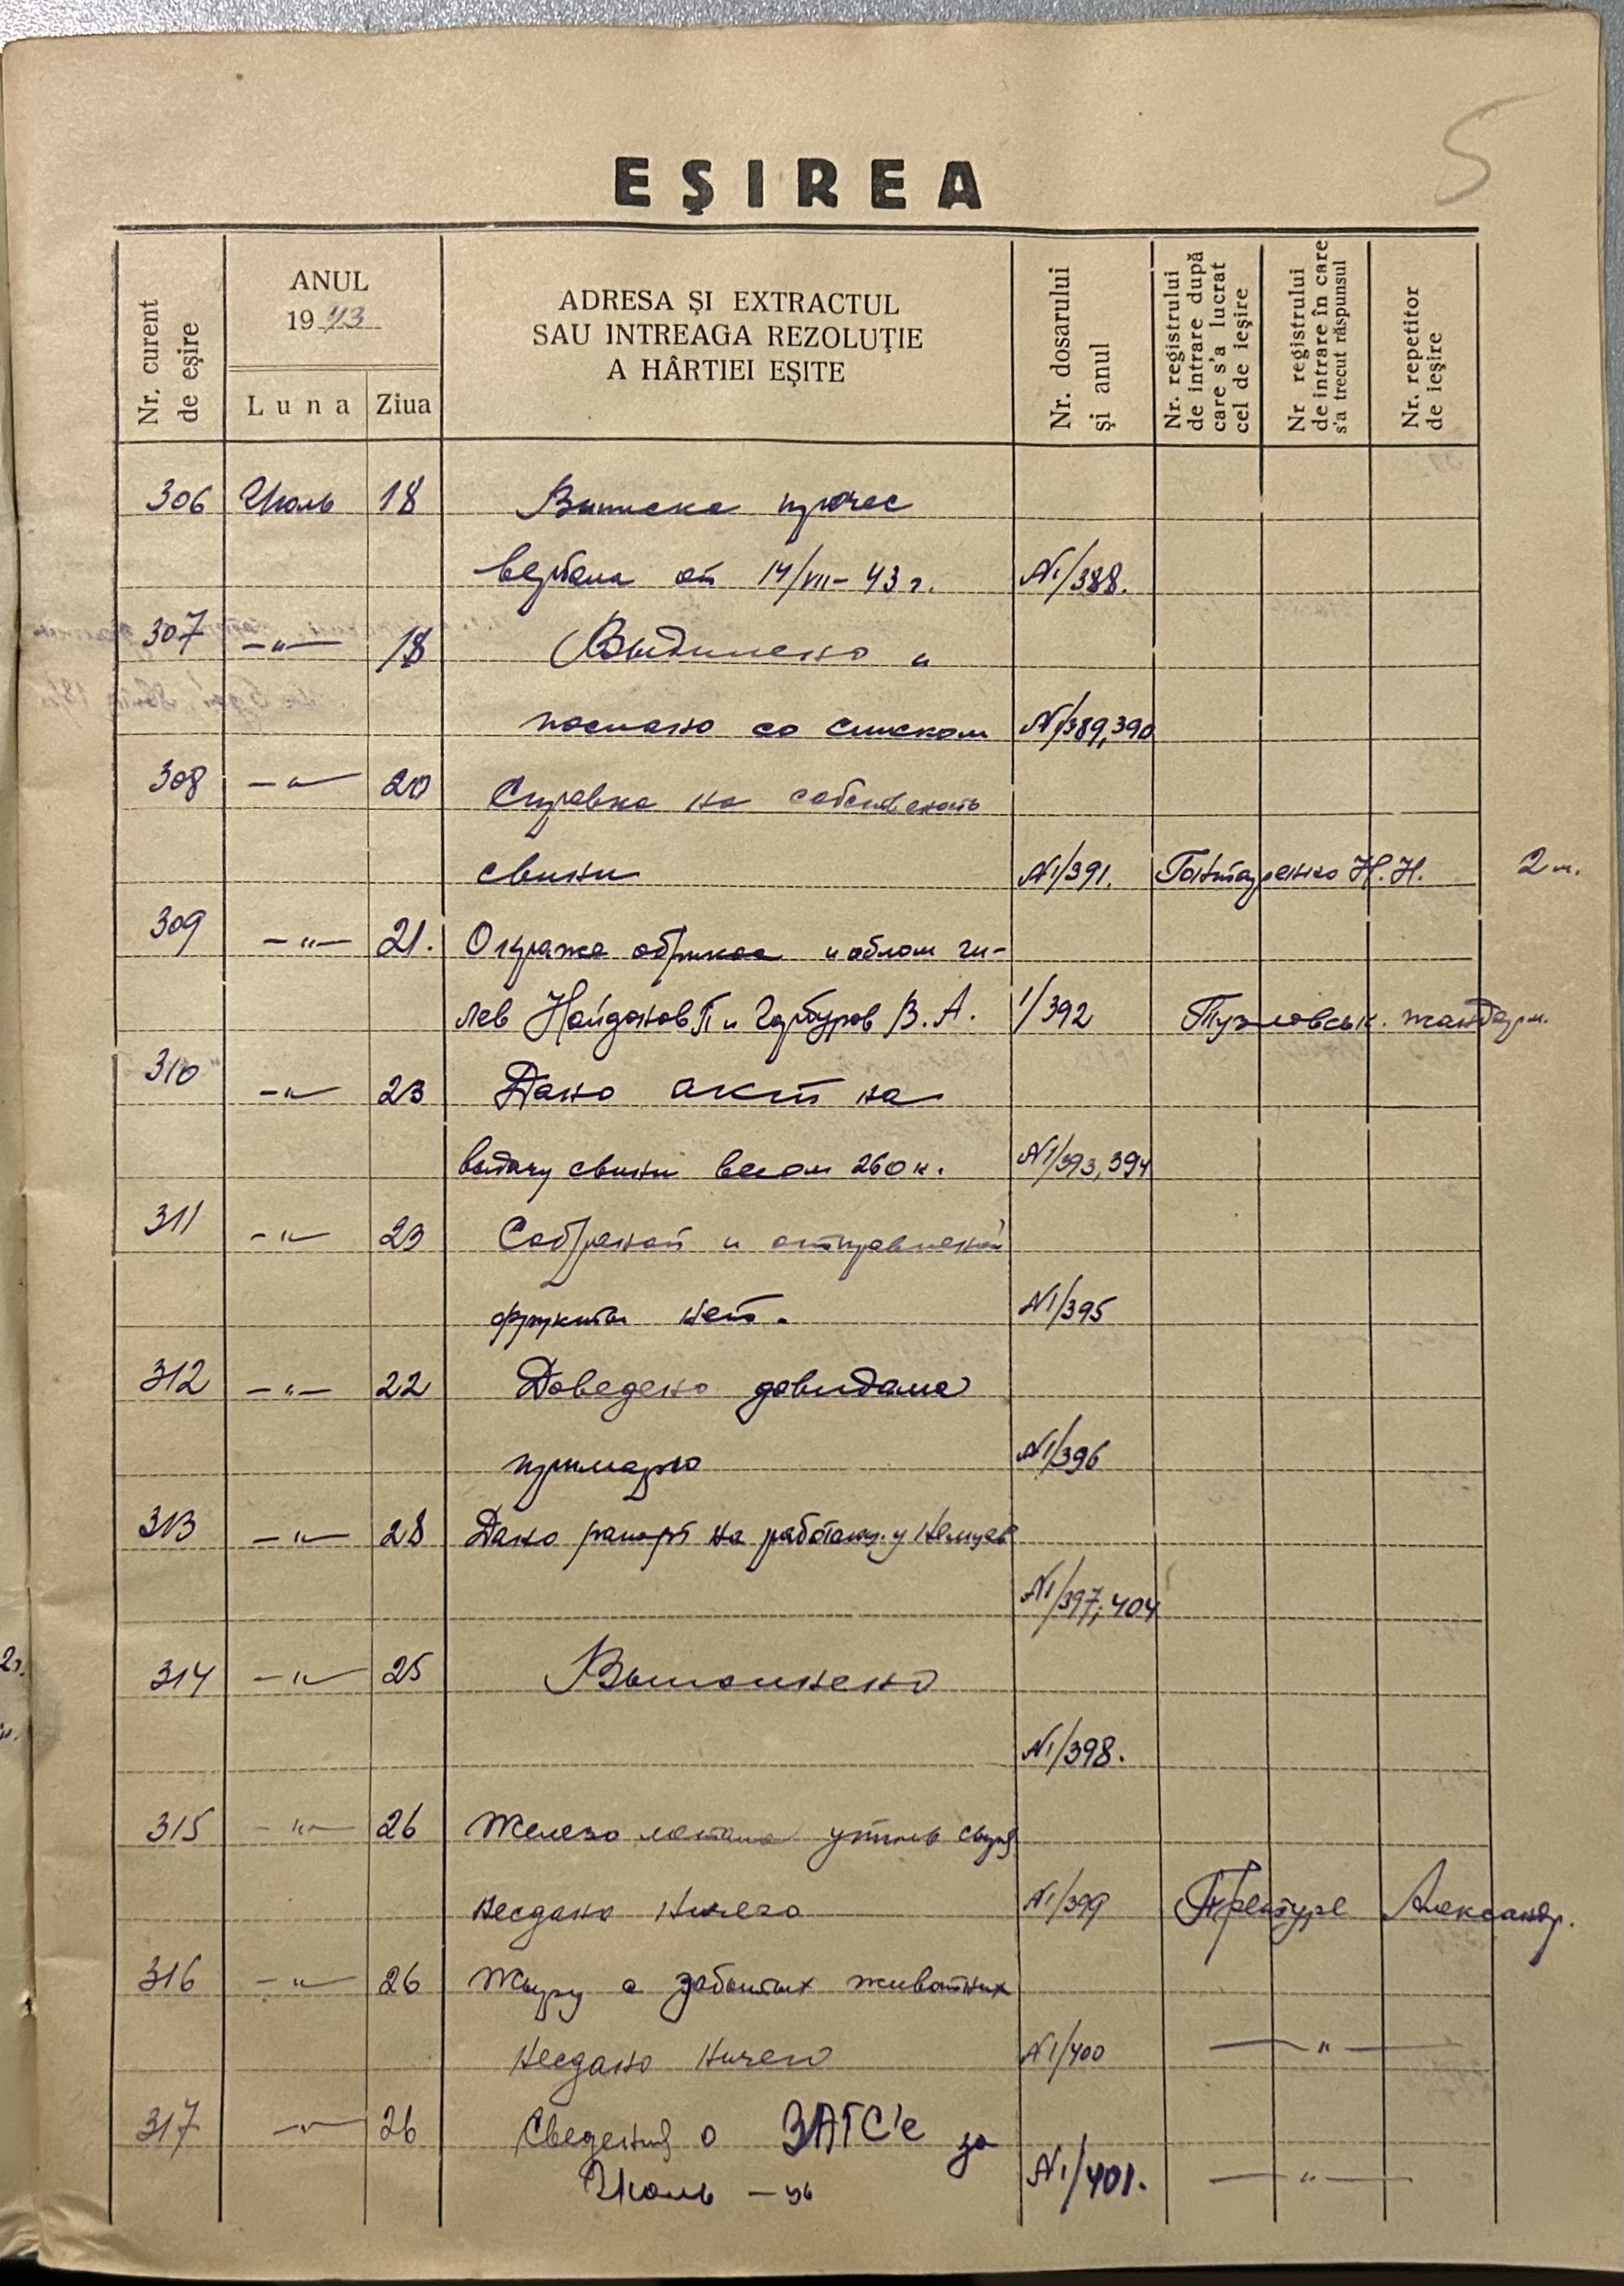 5
EȘIREA
Nr. curent de eșire
ANUL
19 43
Luna
Ziua
ADRESA ȘI EXTRACTUL
SAU INTREAGA REZOLUȚIE
A HÂRTIEI EȘITE
Nr. dosarului și anul
Nr. registrului de intrare după care s'a lucrat cel de ieșire
Nr registrului de intrare în care s'a trecut răspunsul
Nr. repetitor de ieșire
306 Июль 18 Выписка процес
вербала от 14/VII-43 г. №1/388.
307 -"- 18 и
послано со списком №1/389,390
308 -"- 20 Справка на собственость
свини №1/391. Гонтаренко Н.Н. 2 м.
309 -"- 21. О краже абрикос и облом ги-
лев Найданов П и Гарбуров В.А. 1/392 Тузловськ. жандарм.
310 -"- 23 Дано акт на
выдачу свини весом 260 к. №1/393,394
311 -"- 23 Собраной и отправленой
фрукты нет. №1/395
312 -"- 22 Доведено довидама
примарю №1/396
313 -"- 28 Дано рапорт на работающ. у немцев
№1/397; 404
314 -"- 25 Выполнено
№1/398.
315 -"- 26 Железо метала утиль сырья
несдано ничего №1/399 Претуре Александр.
316 -"- 26 Жиру с забитых животных
несдано ничего №1/400 -"-
317 -"- 26 Сведения о ЗАГС'е за
Июль №1/401. -"-